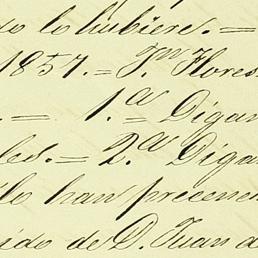 do lo hubiere. =
1857. = Jn Flores
. = 1.a Digan
les. = 2.a Digan
lo han presen
ido de D. Juan d